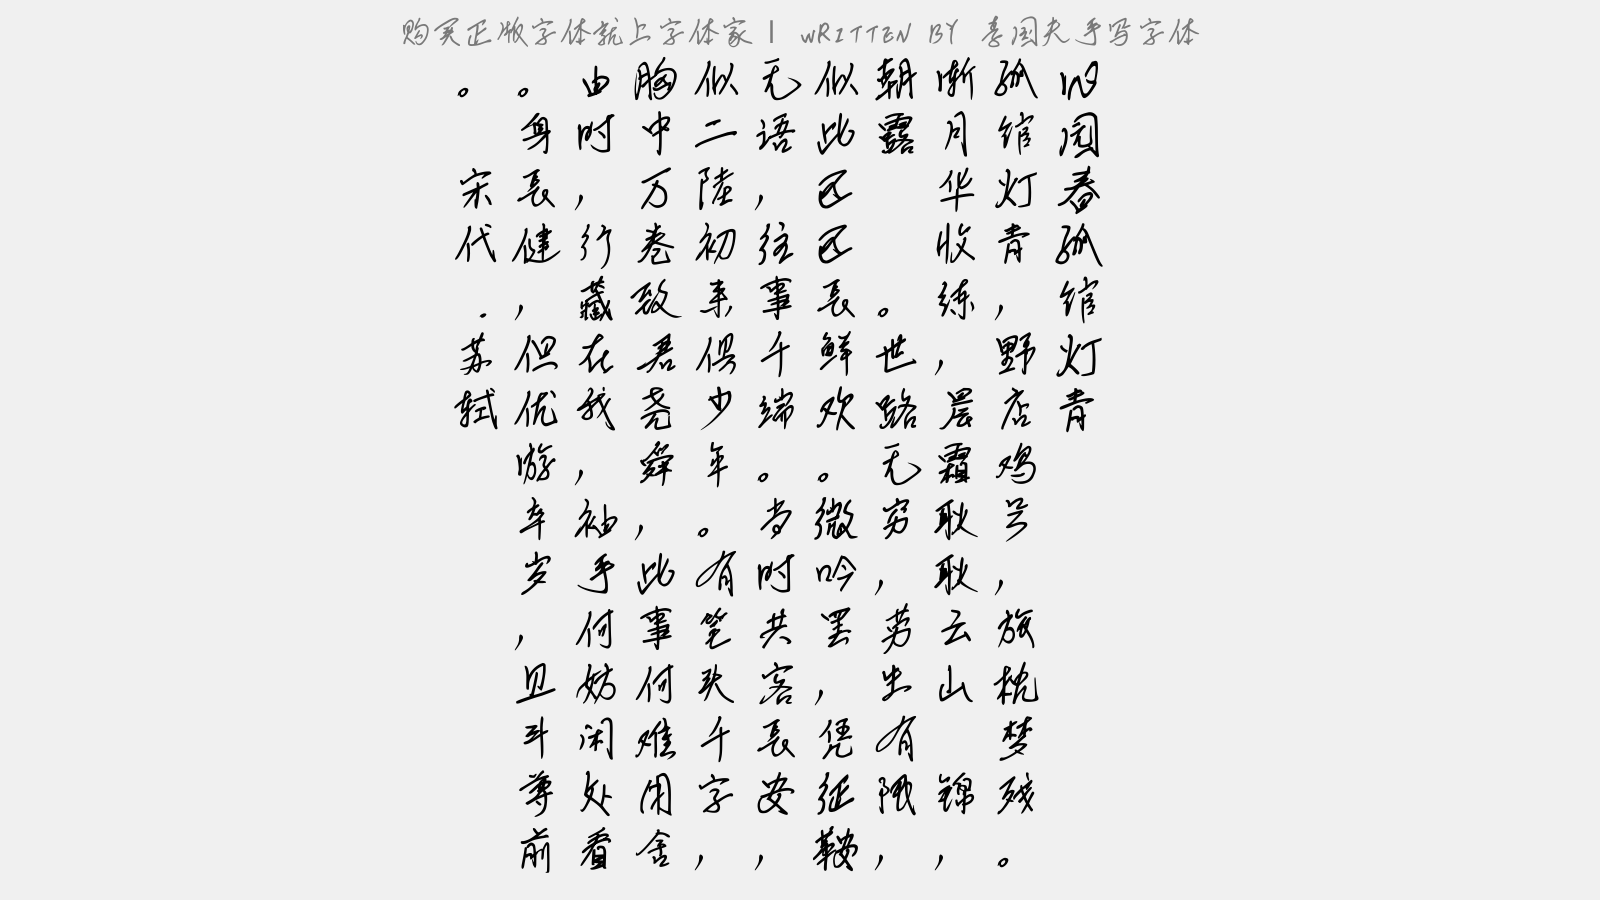 购买正版字体就上字体家 | WRITTEN BY 李国夫手写字体
沁园春孤馆灯青
孤馆灯青，野店鸡号，旅枕梦残。
渐月华收练，晨霜耿耿，云山 锦，
朝露 。世路无穷，劳生有限，
似此区区长鲜欢。微吟罢，凭征鞍
无语，往事千端。当时共客长安，
似二陸初来俱少年。有笔头千字，
胸中万卷致君尧舜，此事何难用舍
由时，行藏在我，袖手何妨闲处看
。身长健，但优游卒岁，且斗尊前
。 宋代.苏轼